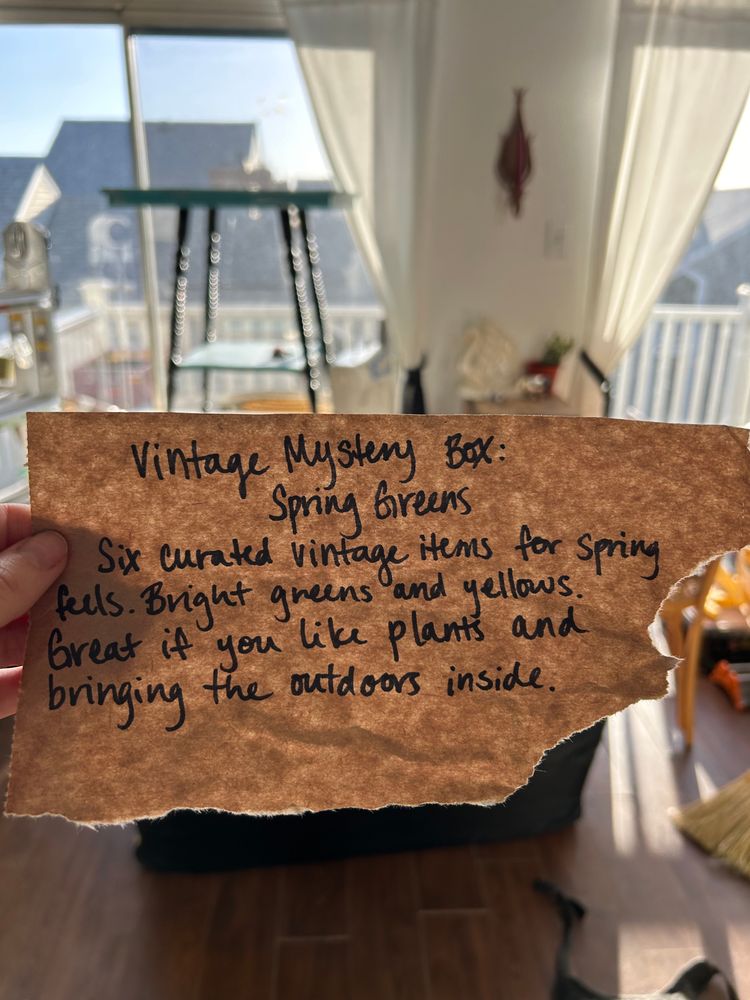 Vintage Mystery Box:
Spring Greens
Six curated vintage items for spring
feels. Bright greens and yellows.
Great if you like plants and
bringing the outdoors inside.